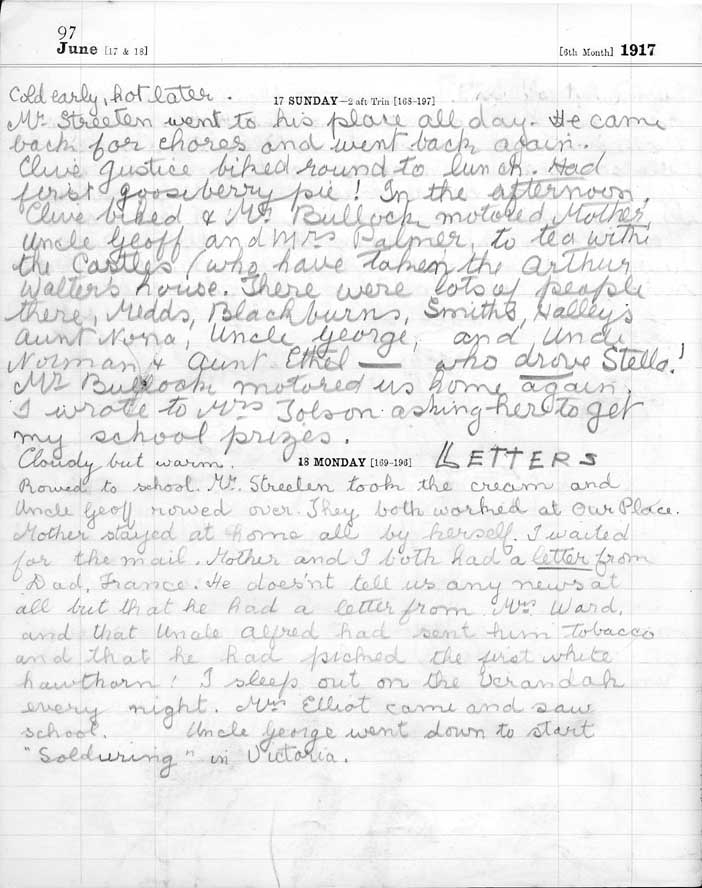 97
June [17 & 18] [6th Month] 1917
Cold early, hot later. 17 SUNDAY—2 aft Trin [168-197]
Mr. Streeten went to his place all day. He came
back for chores and went back again.
Clive Justice biked round to lunch. Had
first gooseberry pie! In the afternoon,
Clive biked & Mr. Bullock motored Mother,
Uncle Geoff and Mrs Palmer, to tea with
the Castles (who have taken the Arthur
Walter's house. There were lots of people
there, Medds, Blackburns, Smiths, Halleys
Aunt Nona, Uncle George, and Uncle
Norman & Aunt Ethel — who drove Stella!
Mr Bullock motored us home again.
I wrote to Mrs Tolson asking her to get
my school prizes.
Cloudy but warm. 18 MONDAY [169-196] LETTERS
Rowed to school. Mr. Streeten took the cream and
Uncle Geoff rowed over. They both worked at Our Place.
Mother stayed at home all by herself. I waited
for the mail. Mother and I both had a letter from
Dad, France. He does'nt tell us any news at
all but that he had a letter from Mrs. Ward,
and that Uncle Alfred had sent him tobacco
and that he had picked the first white
hawthorn! I sleep out on the verandah
every night. Mrs Elliot came and saw
school. Uncle George went down to start
"Soldiering" in Victoria.